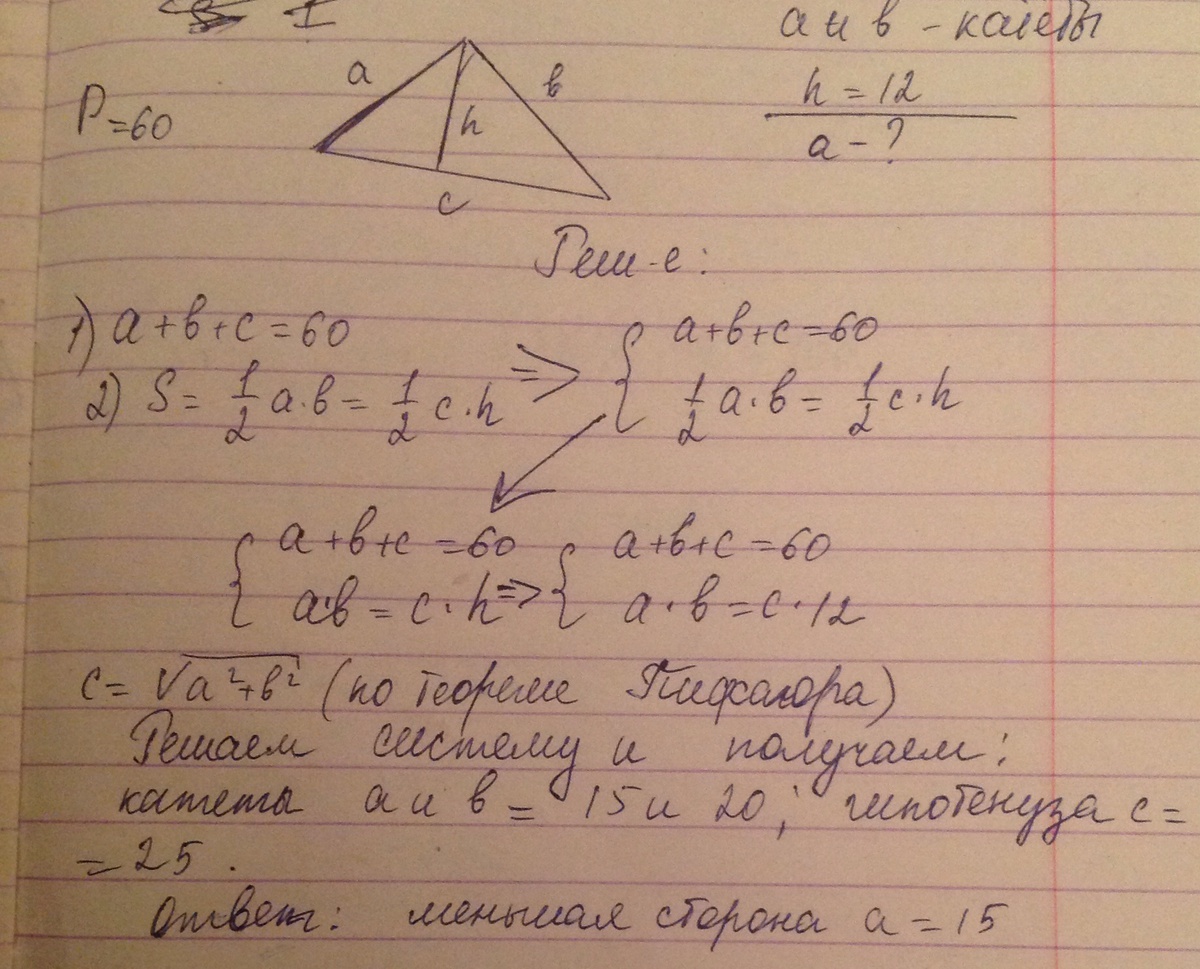 a и в - катеты
P=60
a
h
в
c
h = 12
a - ?
Реш-е:
1) a+в+c=60
2) S= 1/2 a·в= 1/2 c·h => { a+в+c=60
1/2 a·в= 1/2 c·h
{ a+в+c=60
a·в=c·h => { a+в+c=60
a·в=c·12
c= √a²+в² (по теореме Пифагора)
Решаем систему и получаем:
катеты a и в = 15 и 20; гипотенуза c=
= 25.
Ответ: меньшая сторона a=15